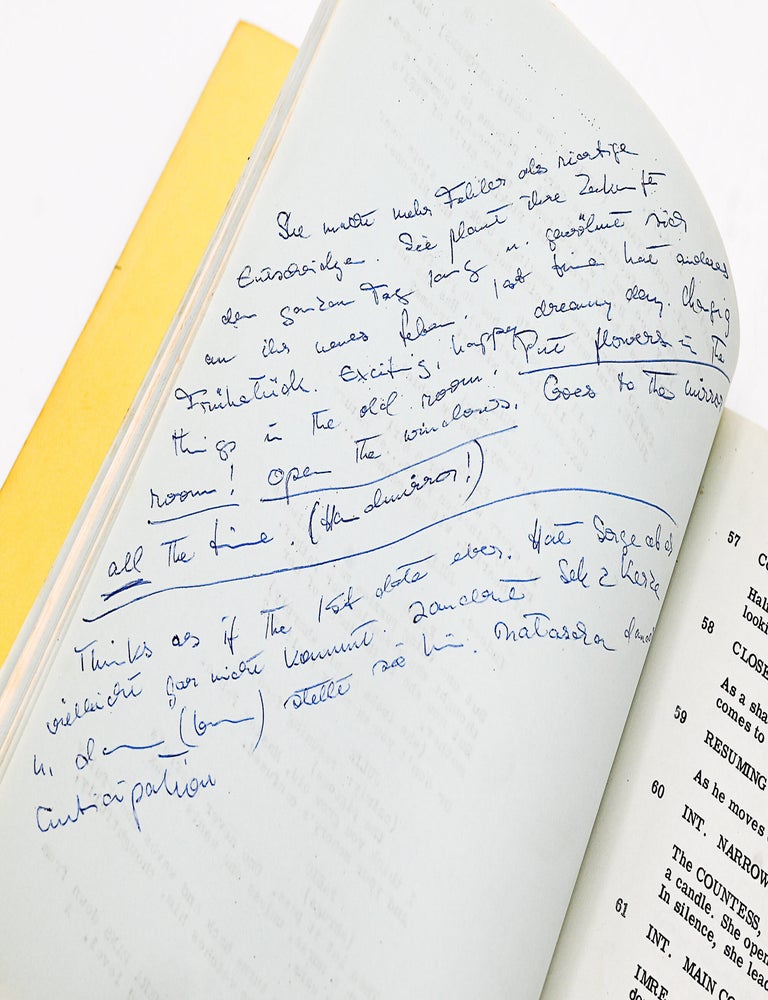 Sie macht mehr Fehler als richtige
Entscheidge. Sie plant ihre Zukunft
den ganzen Tag lang u. gewöhnt sich
an ihr neues Leben. 1st time hat anderes
Frühstück. Exciting, happy dreamy day. Changig
things in the old room. Put flowers in the
room! Open the windows. Goes to the mirror
all the time. (Handmirror!)
Thinks as if the 1st date ever. Hat Sorge
vielleicht gar nicht kommt. zündet Kerze
u. stellt sie hin. Natascha
Anticipation
57
58 CLOSE
As a sha
comes to
59 RESUMING
As he moves
60 INT. NARROW
The COUNTESS,
a candle. She open
In silence, she lead
61 INT. MAIN CO
IMRE